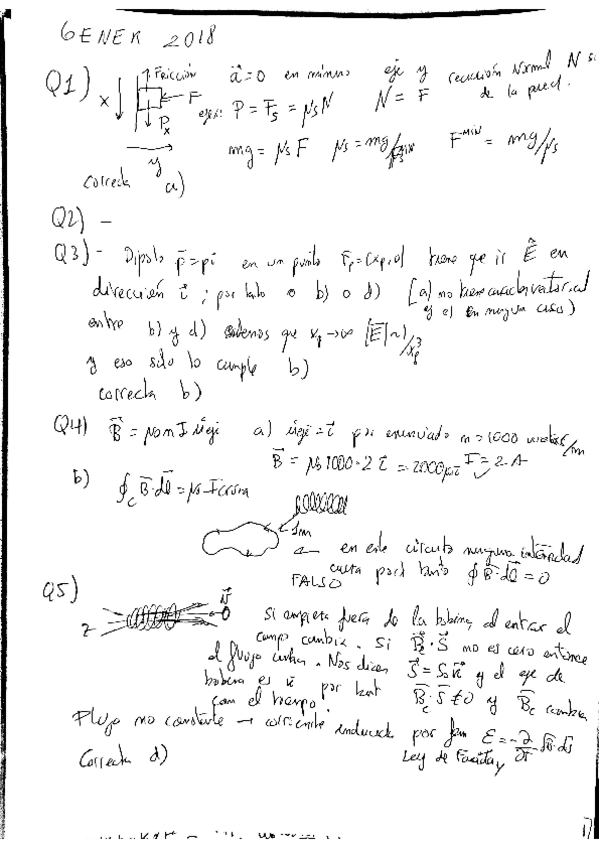 6 ENER 2018
Q1) Fricción a⃗=0 en mismo eje y reacción Normal N
x F ejex: P = Fs = μsN N = F de la pared.
Px
mg = μs F μs = mg/ F^MIN = mg/μs
y
Correcta a)
Q2) —
Q3) - Dipolo p⃗=pi⃗ en un punto tiene que ir E⃗ en
dirección i⃗ ; por tanto o b) o d) [a) no tiene
entre b) y d) sabemos que xp→∞ |E⃗|~1/xp³
y eso sólo lo cumple b)
correcta b)
Q4) B⃗ = μ0 n I a) = i⃗ por enunciado n=1000
B⃗ = μ0 1000·2 i⃗ = 2000μ0i⃗ I = 2 A
b) ∮c B⃗·dl⃗ = μ0
1m
en este circuito ninguna intensidad
por tanto ∮ B⃗·dl⃗ = 0
FALSO
Q5)
Z
si empieza fuera de la bobina, al entrar el
campo cambia. Si B⃗·S⃗ no es cero entonces
el flujo cambia. Nos dicen S⃗ = S0 k⃗ y el eje de
bobina es k⃗ por tant B⃗c·S⃗≠0 y B⃗c cambia
con el tiempo.
Flujo no constante → corriente inducida por fem ε = -∂/∂t ∫B⃗·dS⃗
Ley de Faraday
Correcta d)